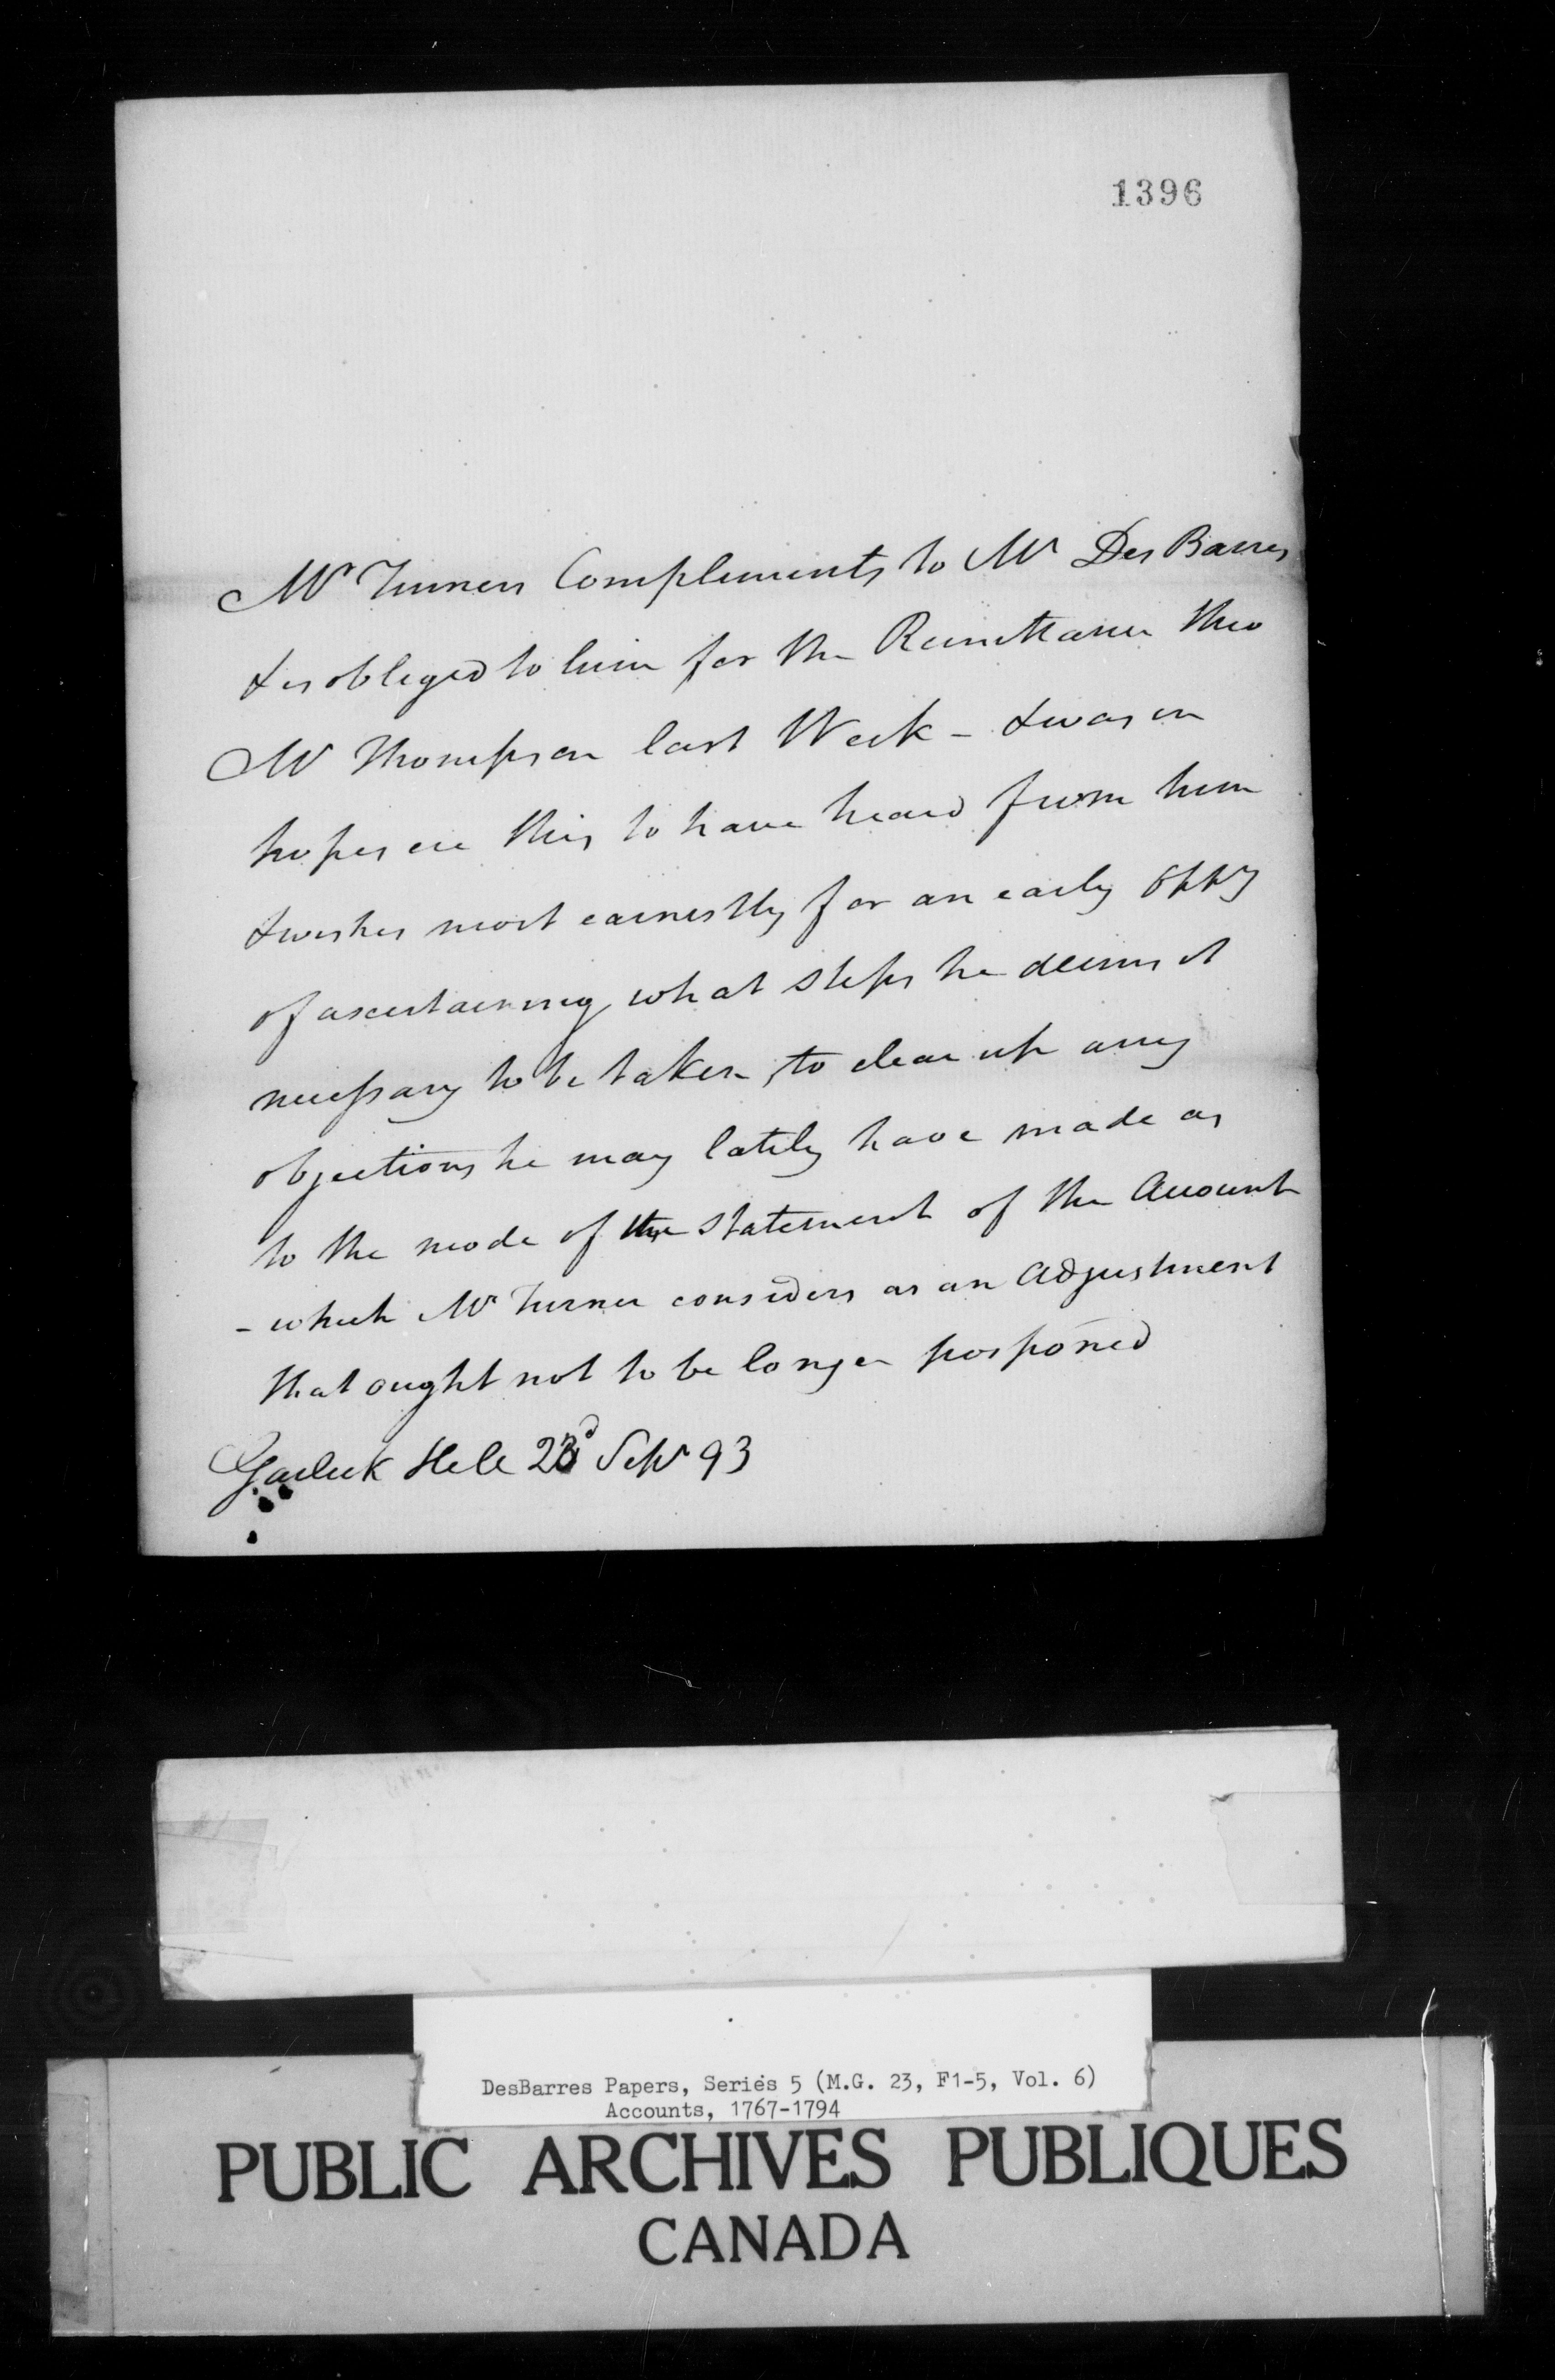 1396
Mr Turners Complements to Mr Des Barres
& is obliged to him for the Remittance thro
Mr Thompson last Week - & was in
hopes ere this to have heard from him
& wishes most earnestly for an early Oppy
of ascertaining what steps he deems it
necessary to be taken, to clear up any
objections he may lately have made as
to the mode of the Statement of the Account
- which Mr Turner considers as an Adjustment
that ought not to be longer posponed
Garlick Hill 23d Sepr 93
DesBarres Papers, Series 5 (M.G. 23, F1-5, Vol. 6)
Accounts, 1767-1794
PUBLIC ARCHIVES PUBLIQUES
CANADA